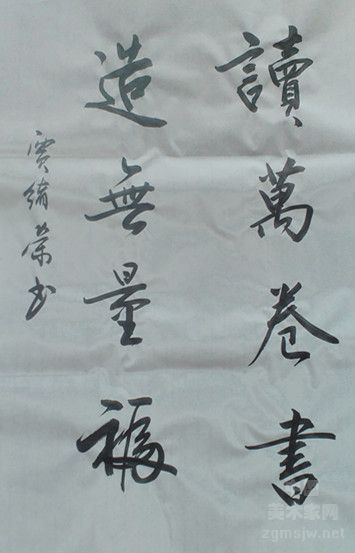 讀萬卷書
造無量福
賈緒榮书
美术家网
zgmsjw.net